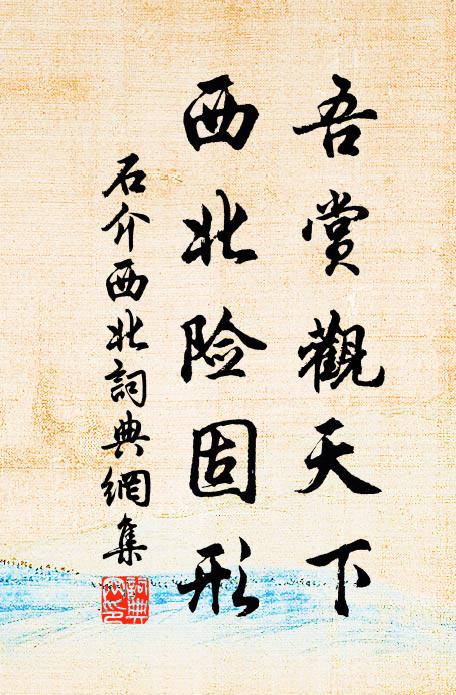 吾赏觀天下
西北险固形
石介西北詞典網集